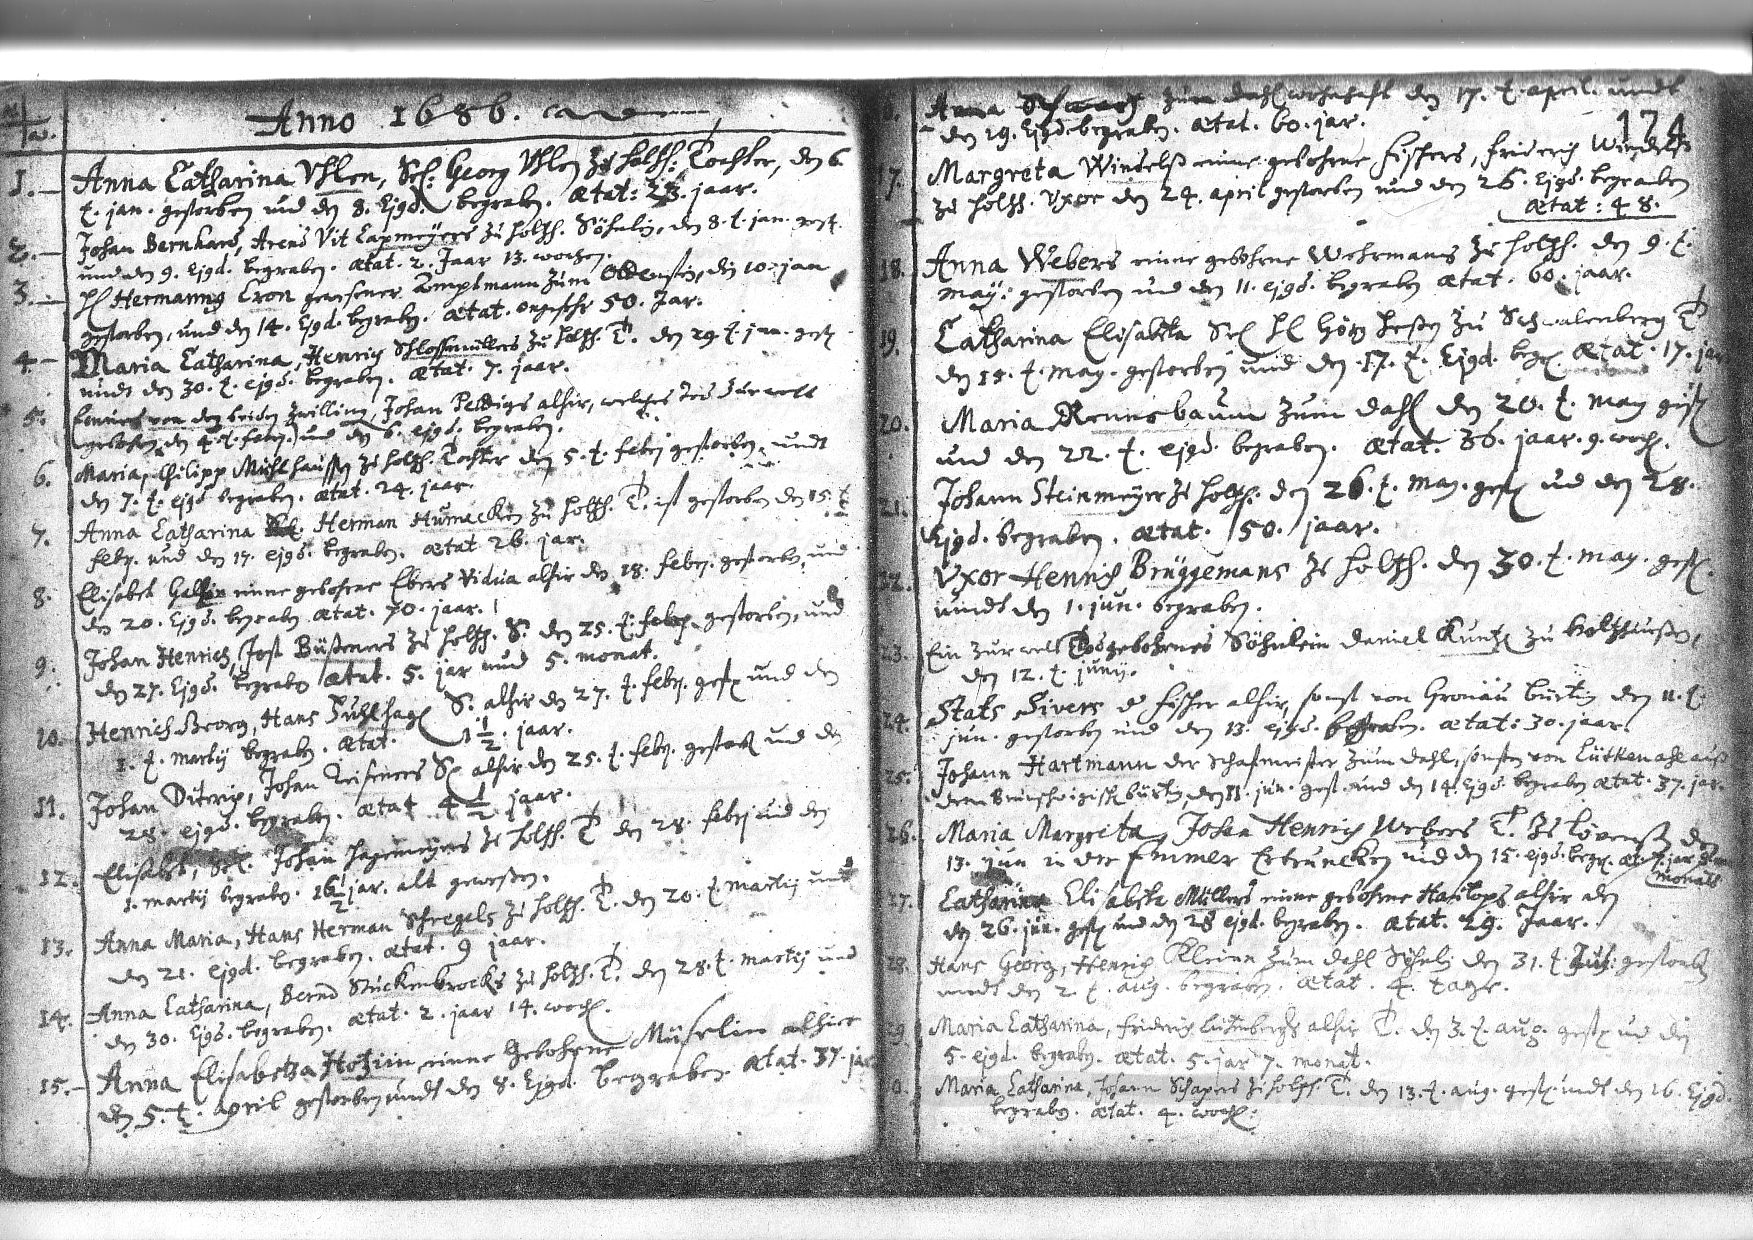 Anno 1686.
1. Anna Catharina Uhlen, Sel: Georg Uhlen zu Holtzh: Tochter, den 6
t. jan. gestorben und den 8. Ejqd. begraben. ætat: 23. jaar.
2. Johan Bernhard, Arend Vit Capmeyers zu Holtzh. Söhnlein, den 8. t. jan. gest.
und den 9. Ejqd. begraben. ætat. 2. Jaar 13. wochen.
3. H Hermanng Cron gewesener Amptmann zum Oldenstein, den 10. jan
gestorben, und den 14. Ejqd. begraben. ætat. 50. Jar.
4. Maria Catharina, Henrich Schlossmüllers zu Holtzh. T. den 29. t. jan. gest
undt den 30. t. ejqd. begraben. ætat. 7. jaar.
5. von den beiden Zwilling, Johan alhir, welches tod zur welt
gebohren, den 4. t. febr. und den 6. ejqd. begraben.
6. Maria, Philipp Mühlhaussen zu Holtzh. Tochter den 5. t. febr gestorben, undt
den 7. t. ejqd begraben. ætat. 24. jaar.
7. Anna Catharina Herman zu Holtzh. T. ist gestorben den 15. t
febr. und den 17. ejqd. begraben. ætat 26. jar.
8. Elisabet eine gebohrne Ebers Vidua alhir den 18. febr. gestorben, und
den 20. Ejqd. begraben ætat. 70. jaar.
9. Johan Henrich, Jost Büsseners zu Holtzh. S. den 25. t. febr. gestorben, und
den 27. Ejqd. begraben ætat. 5. jar und 5. monat.
10. Henrich Georg, Hans S. alhir den 27. t. febr. gest und den
1. t. martij begraben. ætat. 1 1/2. jaar.
11. Johan Diterich, Johan S alhir den 25. t. febr. gestorb und den
28. ejqd. begraben. ætat 4 1/2 jaar.
12. Elisabet, Sel. Johan Hagemeyers zu Holtzh. T den 28. febr und den
1. martij begraben. 16 1/2 jar. alt gewesen.
13. Anna Maria, Hans Herman Schregels zu Holtzh. T. den 20. t. martij und
den 21. ejqd. begraben. ætat. 9 jaar.
14. Anna Catharina, Bernd Stuckenbrocks zu Holtzh. T. den 28. t. martij und
den 30. Ejqd. begraben. ætat. 2. jaar 14. woch.
15. Anna Elisabetha eine gebohrne alhier
den 5. t. april gestorben undt den 8. Ejqd. begraben ætat. 37. jar
174
Anna zum Dahl den 17. t. april. undt
den 19. Ejqd. begraben. ætat. 60. jar.
17. Margreta eine gebohrne Fischers, Friderich
zu Holtzh. Uxor den 24. april gestorben und den 26. Ejqd. begraben
ætat: 48.
18. Anna Webers eine gebohrne Wehrmans zu Holtzh. den 9. t.
may: gestorben und den 11. ejqd. begraben ætat. 60. jaar.
19. Catharina Elisabeta Sel H zu Schwalenberg T
den 15. t. may. gestorben und den 17. t. Ejqd. begr ætat. 17. jar
20. Maria Rennebaum zum Dahl den 20. t. may gest
und den 22. t. ejqd. begraben. ætat. 36. jaar. 9. woch.
21. Johann Steinmeyer zu Holtzh: den 26. t. may. gest und den 28.
Ejqd. begraben. ætat. 50. jaar.
22. Uxor Henrich Brüggemans zu Holtzh. den 30. t. may. gest.
undt den 1. jun. begraben.
23. Ein zur welt Todgebohrnes Söhnlein Daniel Kuntz zu Holtzhausen,
den 12. t. junij.
24. Stats Sivers d Fischer alhir, sonst von Gronau bürtig den 11. t.
jun. gestorben und den 13. ejqd. begraben. ætat: 30. jaar.
25. Johann Hartmann der Schafmeister zum Dahl, sonsten von auß
dem bürtig, den 11. jun. gest. und den 14. Ejqd. begraben ætat. 37. jar.
26. Maria Margreta, Johan Henrich Webers T. zu den
13. jun in der Emmer Ertruncken und den 15. ejqd. begr. æt. 7. jar
monat
27. Catharina Elisabeta Müllers eine gebohrne alhir
den 26. jun. gest und den 28 ejqd. begraben. ætat. 29. Jaar.
28. Hans Georg, Henrich Kleinen zum Dahl Söhnl. den 31. t. Jul: gestorb
undt den 2. t. aug. begraben. ætat. 4. tage.
29 Maria Catharina, Friderich alhir T. den 3. t. aug. gest und den
5. ejqd. begraben. ætat. 5. jar 7. monat.
0. Maria Catharina, Johann Schapers zu Holtzh T. den 13. t. aug. gest undt den 16. Ejqd.
begraben. ætat. 4. woch.